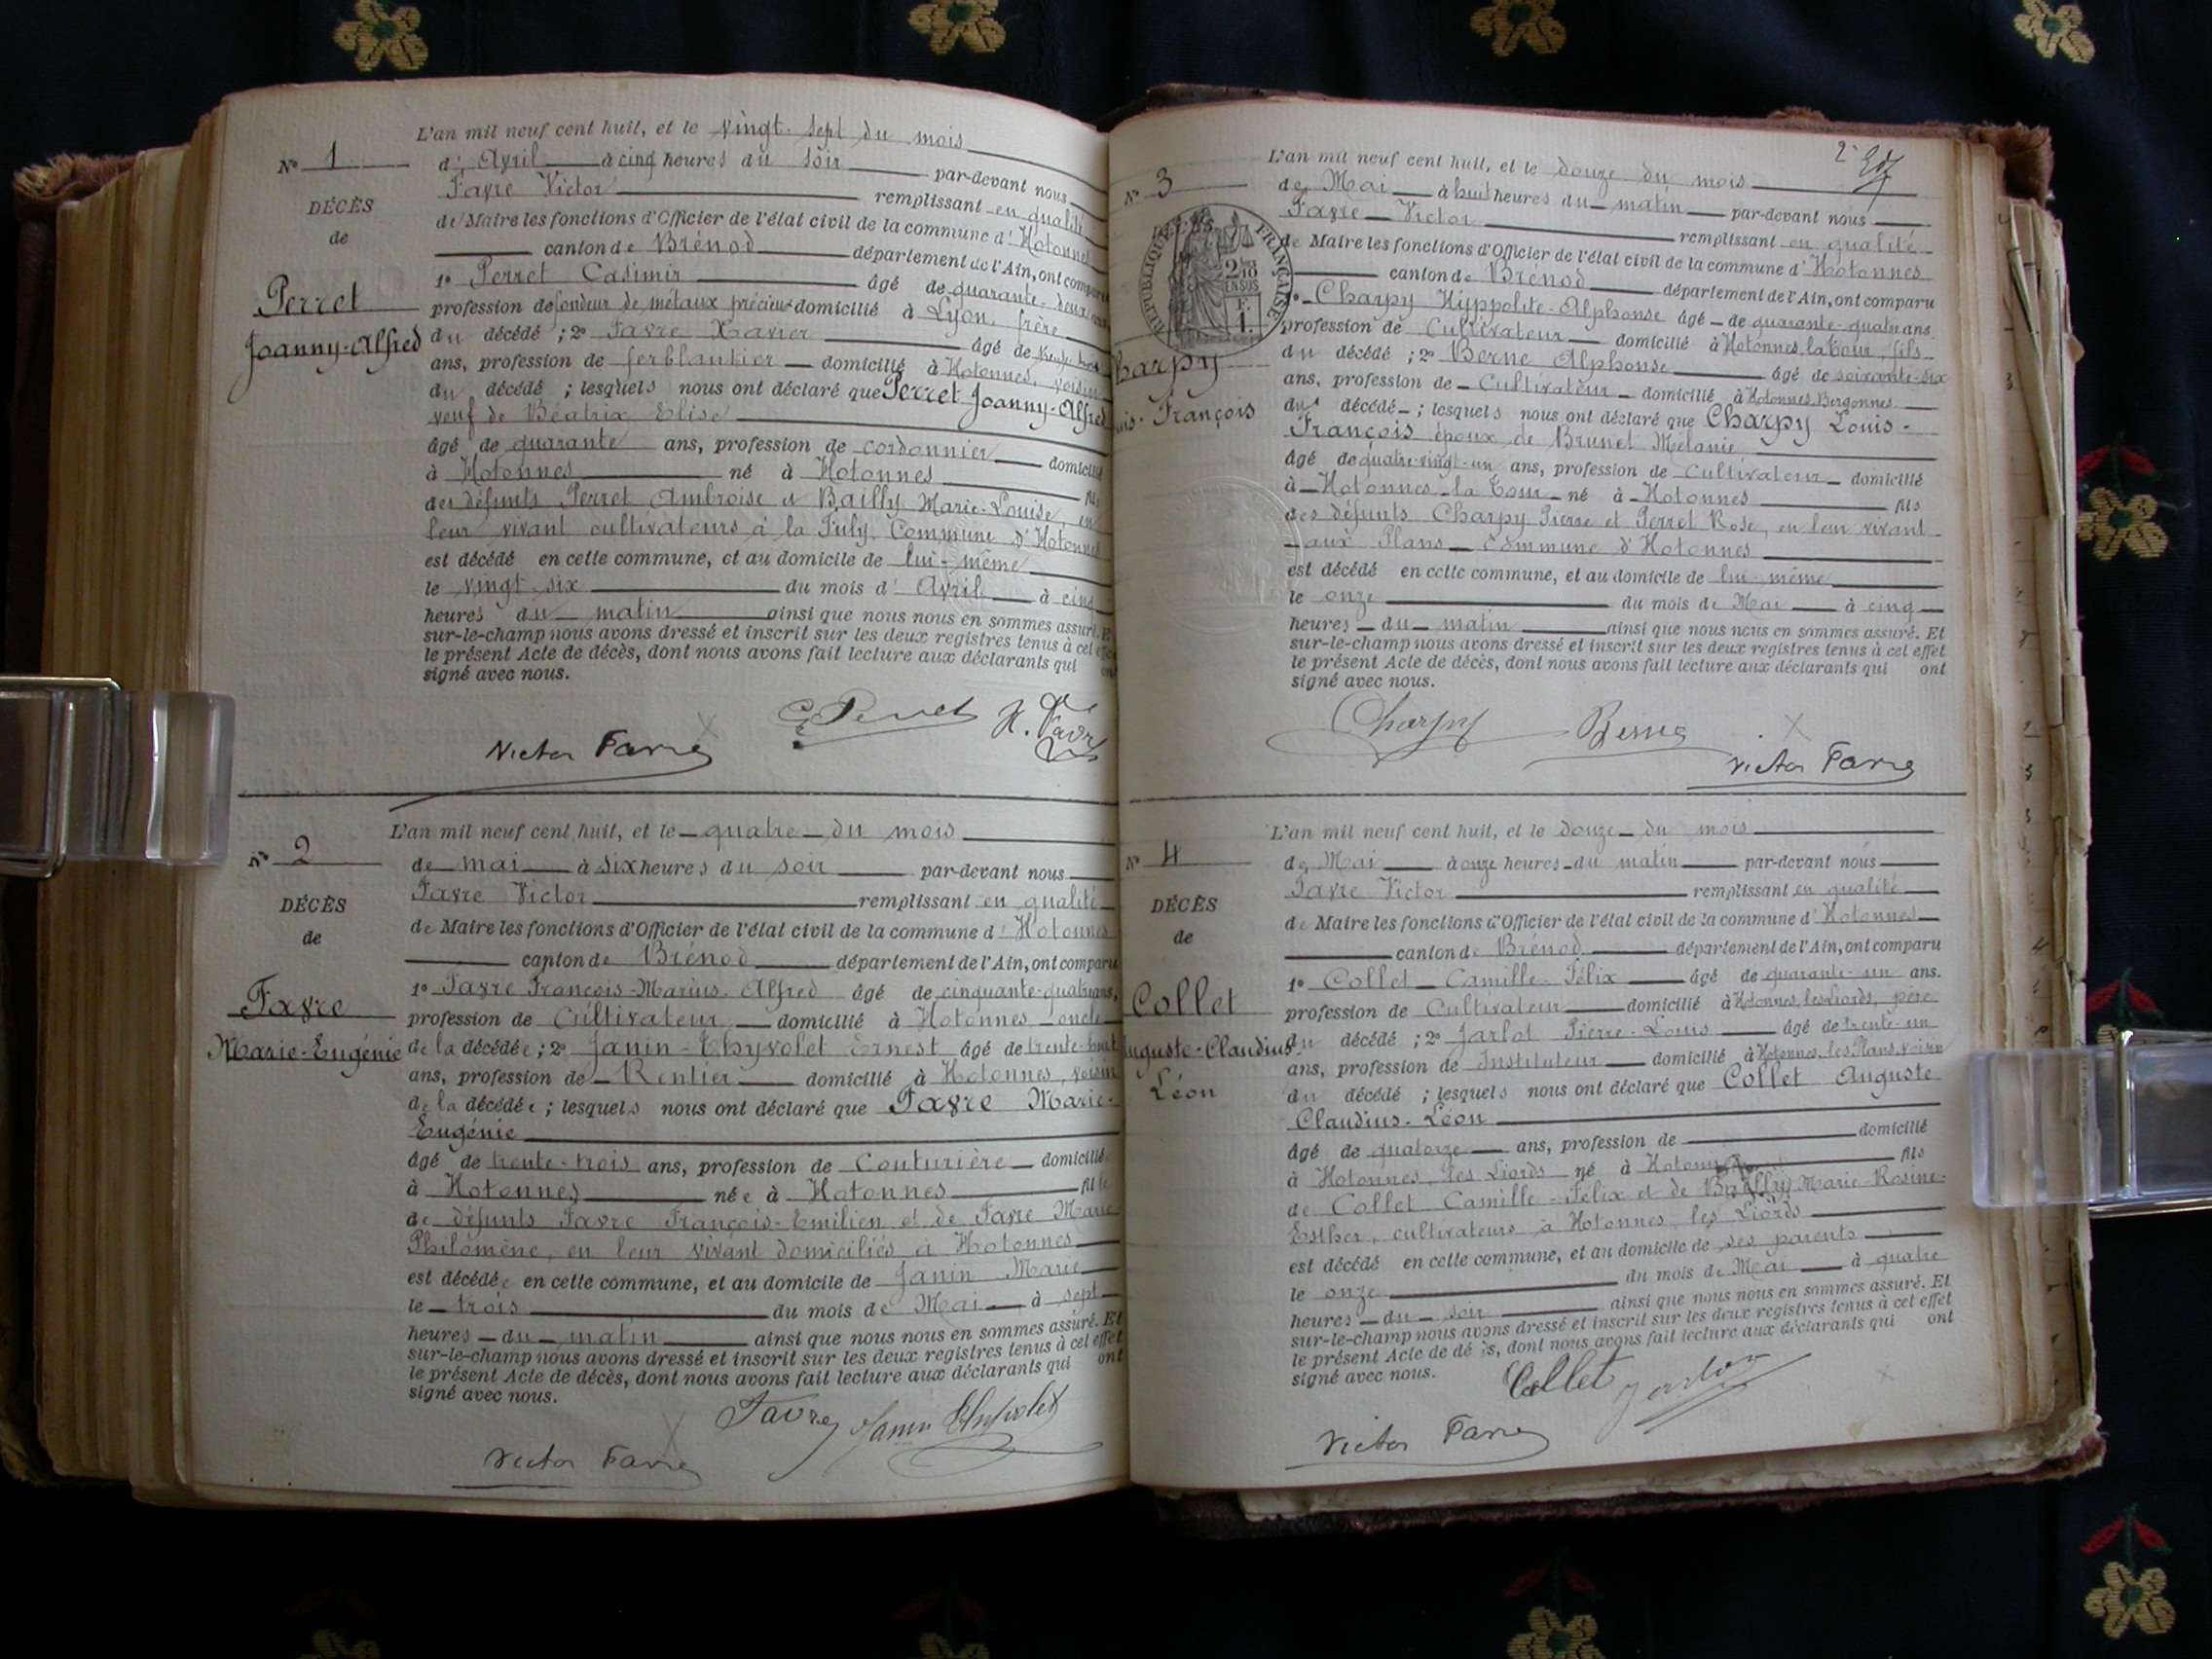 N° 1
DÉCÈS
de
Perret
Joanny-Alfred
L'an mil neuf cent huit, et le vingt-sept du mois
d' Avril à cinq heures du soir par-devant nous
Favre Victor remplissant en qualité
de Maire les fonctions d'Officier de l'état civil de la commune d' Hotonnes
canton de Brénod département de l'Ain, ont comparu
1° Perret Casimir âgé de quarante-deux ans
profession de fondeur de métaux précieux domicilié à Lyon, frère
du décédé ; 2° Favre Xavier âgé de trente-trois
ans, profession de ferblantier domicilié à Hotonnes, voisin
du décédé ; lesquels nous ont déclaré que Perret Joanny-Alfred
veuf de Béatrix Elise
âgé de quarante ans, profession de cordonnier domicilié
à Hotonnes né à Hotonnes fils
des défunts Perret Ambroise et Bailly Marie-Louise, en
leur vivant cultivateurs à la July, Commune d'Hotonnes
est décédé en cette commune, et au domicile de lui-même
le vingt six du mois d' Avril à cinq
heures du matin ainsi que nous nous en sommes assuré. Et
sur-le-champ nous avons dressé et inscrit sur les deux registres tenus à cet effet
le présent Acte de décès, dont nous avons fait lecture aux déclarants qui ont
signé avec nous.
C Perret X. Favre
Victor Favre
N° 2
DÉCÈS
de
Favre
Marie-Eugénie
L'an mil neuf cent huit, et le quatre du mois
de mai à six heures du soir par-devant nous
Favre Victor remplissant en qualité
de Maire les fonctions d'Officier de l'état civil de la commune d' Hotonnes
canton de Brénod département de l'Ain, ont comparu
1° Favre François-Marius-Alfred âgé de cinquante-quatre ans,
profession de Cultivateur domicilié à Hotonnes oncle
de la décédée ; 2° Janin-Thyvolet Ernest âgé de trente-huit
ans, profession de Rentier domicilié à Hotonnes, voisin
de la décédée ; lesquels nous ont déclaré que Favre Marie-
Eugénie
âgé de trente-trois ans, profession de Couturière domiciliée
à Hotonnes née à Hotonnes fille
de défunts Favre François-Emilien et de Favre Marie
Philomène, en leur vivant domiciliés à Hotonnes
est décédée en cette commune, et au domicile de Janin Marie
le trois du mois de Mai à sept
heures du matin ainsi que nous nous en sommes assuré. Et
sur-le-champ nous avons dressé et inscrit sur les deux registres tenus à cet effet
le présent Acte de décès, dont nous avons fait lecture aux déclarants qui ont
signé avec nous.
Favre Janin Thyvolet
Victor Favre
2°
N° 3
RÉPUBLIQUE FRANÇAISE
2/10
EN SUS
F.
1.
Charpy
Louis-François
L'an mil neuf cent huit, et le douze du mois
de Mai à huit heures du matin par-devant nous
Favre Victor remplissant en qualité
de Maire les fonctions d'Officier de l'état civil de la commune d' Hotonnes
canton de Brénod département de l'Ain, ont comparu
1° Charpy Hyppolite-Alphonse âgé de quarante-quatre ans
profession de Cultivateur domicilié à Hotonnes, la Cour, fils
du décédé ; 2° Berne Alphonse âgé de soixante-six
ans, profession de Cultivateur domicilié à Hotonnes, Bergonnes
du décédé ; lesquels nous ont déclaré que Charpy Louis-
François époux de Brunet Mélanie
âgé de quatre-vingt-un ans, profession de Cultivateur domicilié
à Hotonnes la Cour né à Hotonnes fils
des défunts Charpy Pierre et Perret Rose, en leur vivant
aux Plans Commune d'Hotonnes
est décédé en cette commune, et au domicile de lui-même
le onze du mois de Mai à cinq
heures du matin ainsi que nous nous en sommes assuré. Et
sur-le-champ nous avons dressé et inscrit sur les deux registres tenus à cet effet
le présent Acte de décès, dont nous avons fait lecture aux déclarants qui ont
signé avec nous.
Charpy Berne
Victor Favre
N° 4
DÉCÈS
de
Collet
Auguste-Claudius-
Léon
L'an mil neuf cent huit, et le douze du mois
de Mai à onze heures du matin par-devant nous
Favre Victor remplissant en qualité
de Maire les fonctions d'Officier de l'état civil de la commune d' Hotonnes
canton de Brénod département de l'Ain, ont comparu
1° Collet Camille-Félix âgé de quarante-un ans.
profession de Cultivateur domicilié à Hotonnes, les Liords, père
du décédé ; 2° Jarlot Pierre-Louis âgé de trente-un
ans, profession de Instituteur domicilié à Hotonnes, les Plans, voisin
du décédé ; lesquels nous ont déclaré que Collet Auguste
Claudius-Léon
âgé de quatorze ans, profession de domicilié
à Hotonnes, les Liords né à Hotonnes fils
de Collet Camille-Félix et de Bailly Marie-Rosine-
Esther, cultivateurs à Hotonnes, les Liords
est décédé en cette commune, et au domicile de ses parents
le onze du mois de Mai à quatre
heures du soir ainsi que nous nous en sommes assuré. Et
sur-le-champ nous avons dressé et inscrit sur les deux registres tenus à cet effet
le présent Acte de décès, dont nous avons fait lecture aux déclarants qui ont
signé avec nous.
Collet Jarlot
Victor Favre